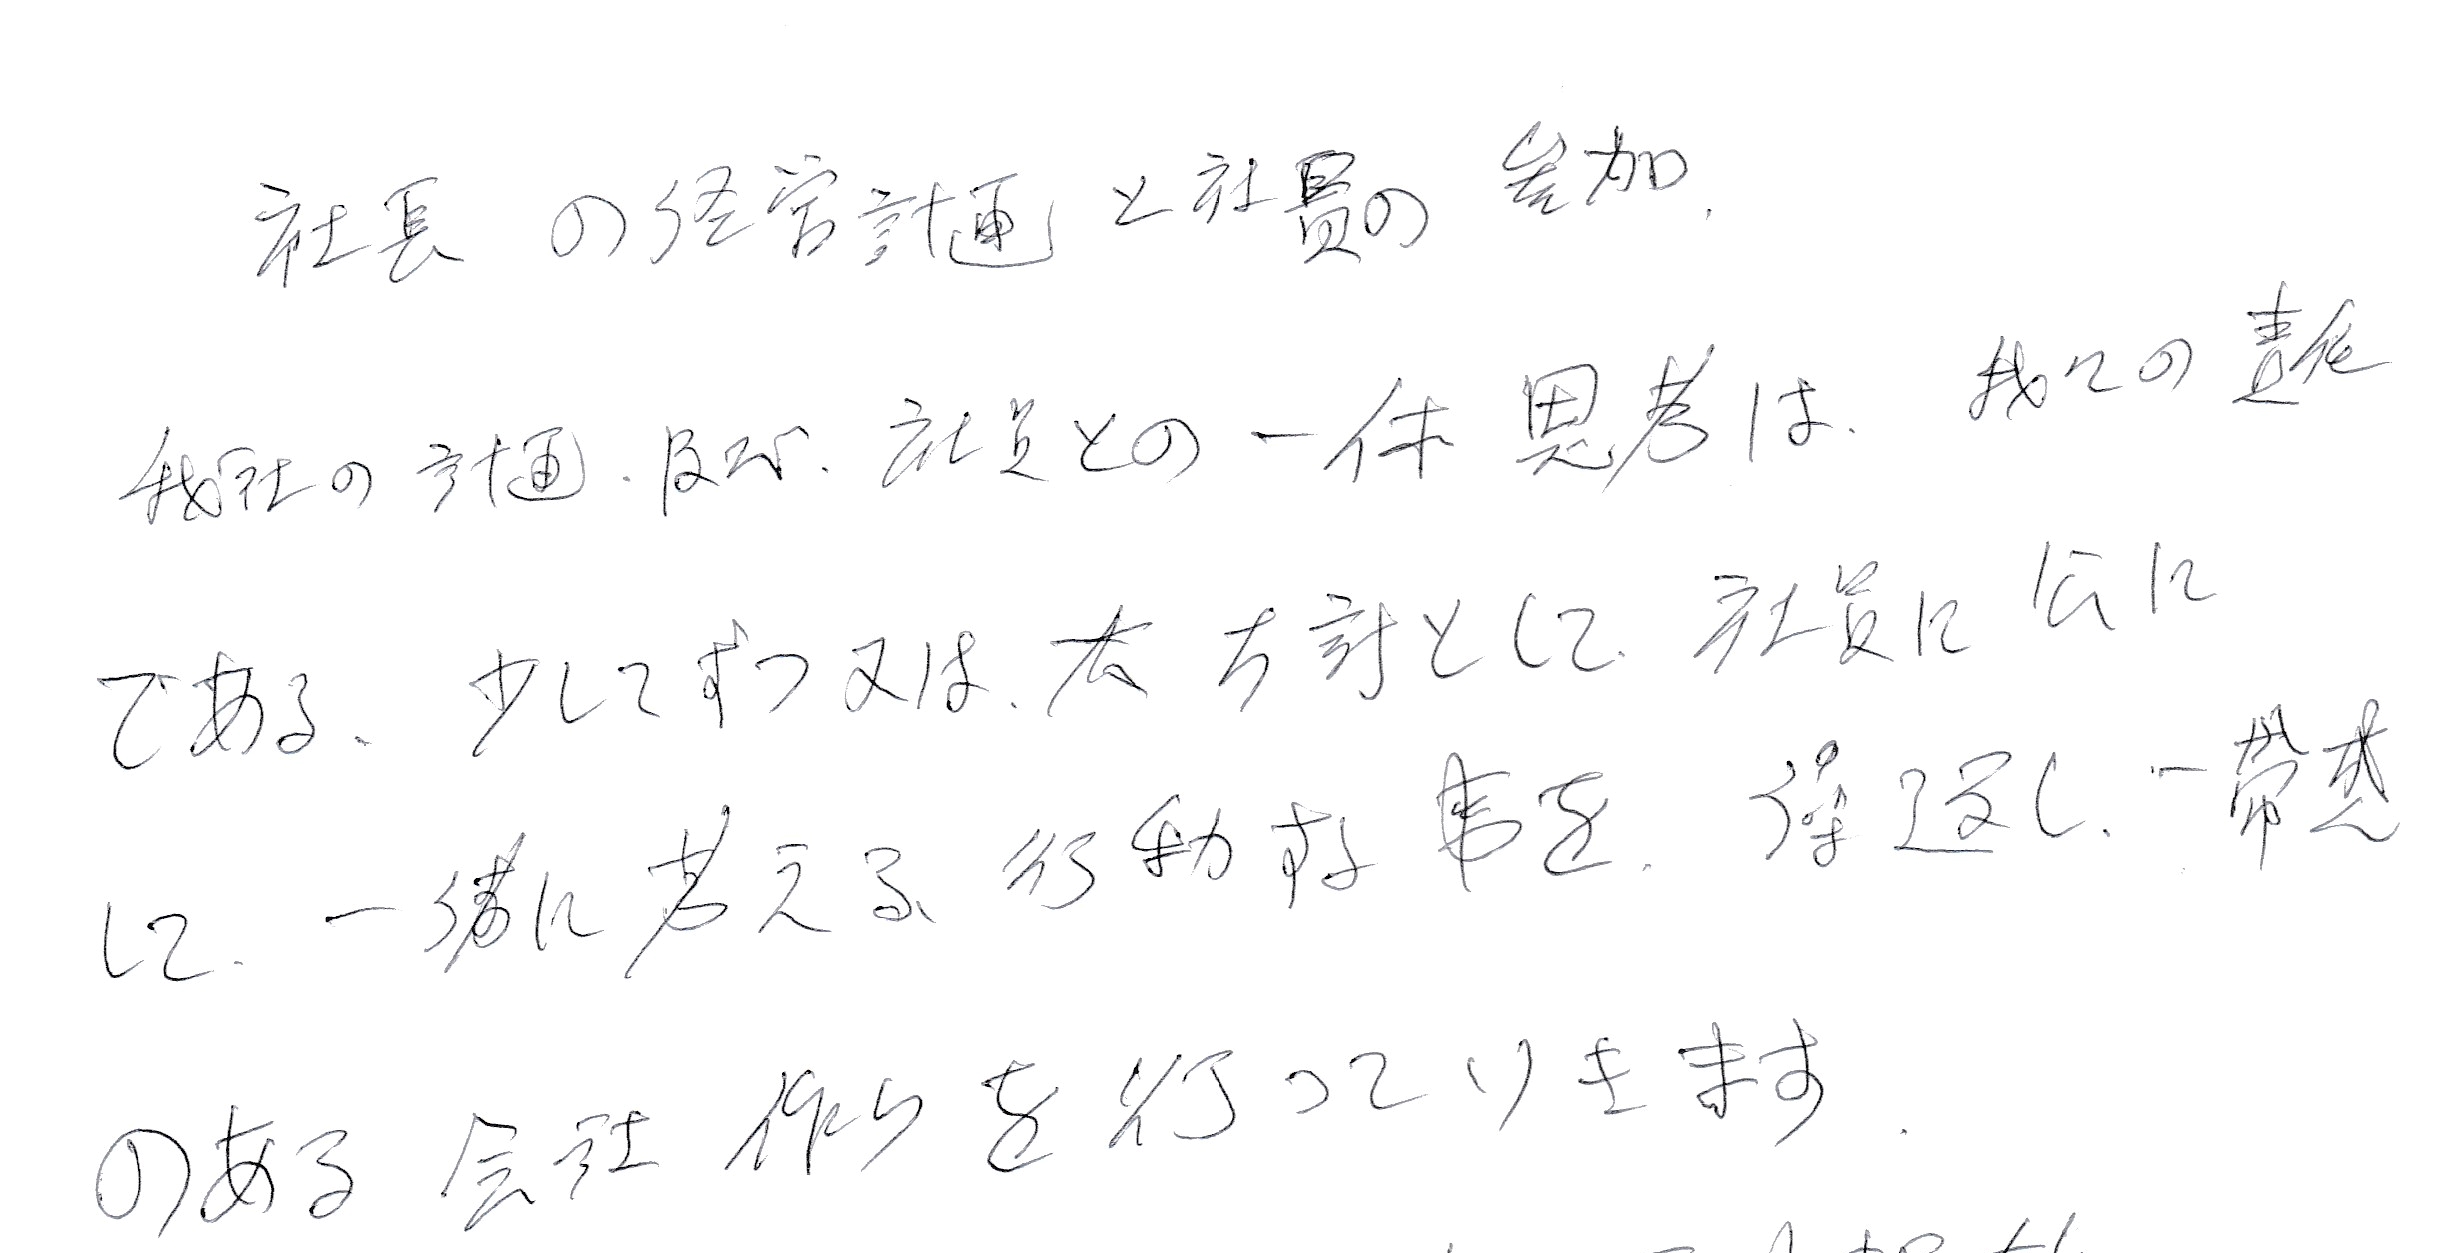 社長の経営計画と社員の参加.
我社の計画.及び.社員との一体思考は.我々の責任
である、少してずつ又は.大方針として.社員に公に
して.一緒に考える、行動する事を.繰返し.一帯感
のある会社作りを行っていきます.